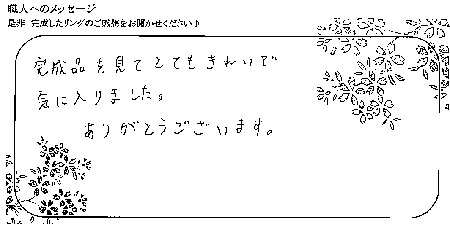 職人へのメッセージ
是非 完成したリングのご感想をお聞かせください♪
完成品を見てとてもきれいで
気に入りました。
ありがとうございます。